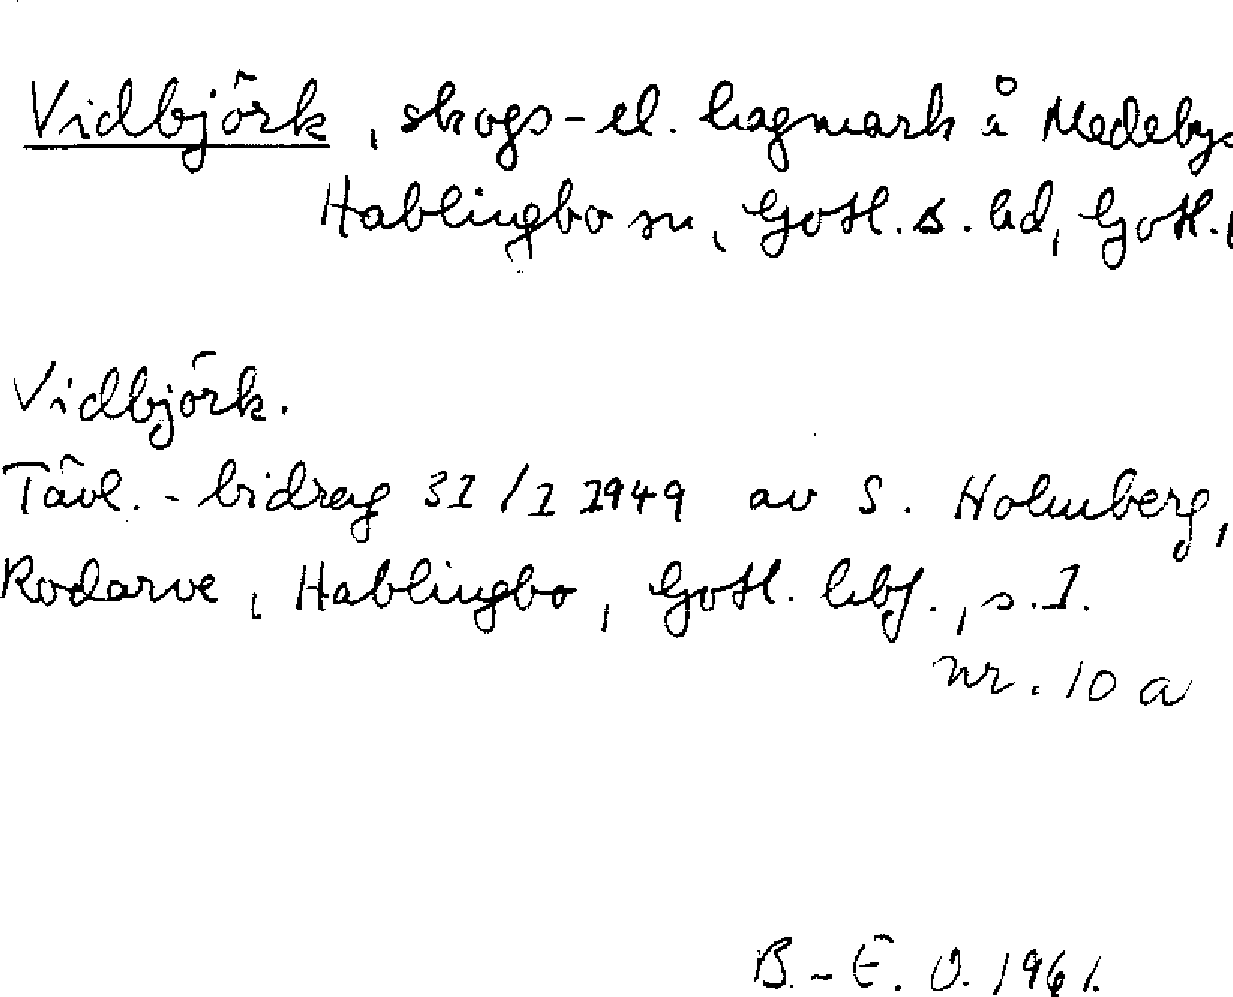 Vidbjörk, skogs- el. hagmark å Medebys
Hablingbo sn, Gotl. s. hd, Gotl. l
Vidbjörk.
Tävl.-bidrag 31/1 1949 av S. Holmberg,
Rodarve, Hablingbo, Gotl. hbf., s. 1.
nr. 10 a
B.-E. O. 1961.